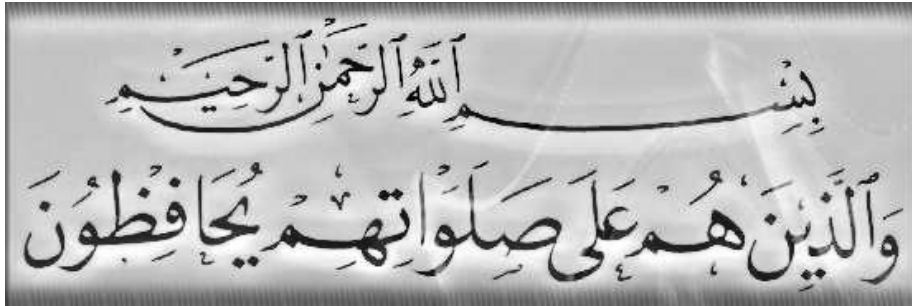 بِسْمِ ٱللَّهِ ٱلرَّحْمَٰنِ ٱلرَّحِيمِ
وَٱلَّذِينَ هُمْ عَلَى صَلَوَاتِهِمْ يُحَافِظُونَ